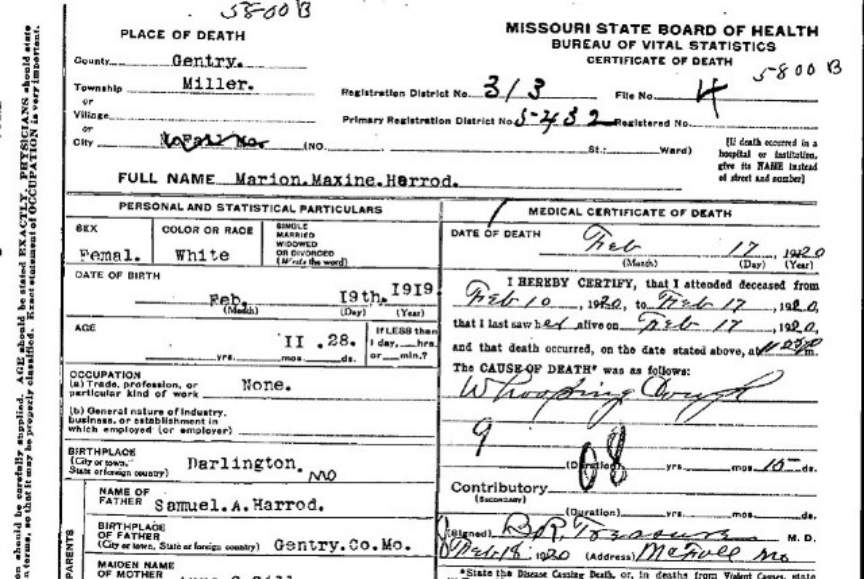 5800B
PLACE OF DEATH
MISSOURI STATE BOARD OF HEALTH
BUREAU OF VITAL STATISTICS
CERTIFICATE OF DEATH
5800B
County Gentry.
Township Miller.
or
Village
or
City McFall Mo. (NO. St.; Ward)
Registration District No. 313 File No. 4
Primary Registration District No. 5432 Registered No.
[If death occurred in a
hospital or institution,
give its NAME instead
of street and number]
FULL NAME Marion.Maxine.Harrod.
PERSONAL AND STATISTICAL PARTICULARS
SEX
Femal.
COLOR OR RACE
White
SINGLE
MARRIED
WIDOWED
OR DIVORCED
(Write the word)
DATE OF BIRTH
Feb. 19th. 1919
(Month) (Day) (Year)
AGE
II .28.
yrs. mos. ds.
If LESS than
1 day, hrs.
or min.?
OCCUPATION
(a) Trade, profession, or
particular kind of work None.
(b) General nature of industry,
business, or establishment in
which employed (or employer)
BIRTHPLACE
(City or town,
State or foreign country) Darlington. Mo
PARENTS
NAME OF
FATHER Samuel.A.Harrod.
BIRTHPLACE
OF FATHER
(City or town, State or foreign country) Gentry.Co.Mo.
MAIDEN NAME
OF MOTHER
MEDICAL CERTIFICATE OF DEATH
DATE OF DEATH
Feb 17, 1920
(Month) (Day) (Year)
I HEREBY CERTIFY, that I attended deceased from
Feb 10, 1920, to Feb 17, 1920,
that I last saw her alive on Feb 17, 1920,
and that death occurred, on the date stated above, at m.
The CAUSE OF DEATH* was as follows:
Whooping Cough
9
08
(Duration) yrs. mos. 15 ds.
Contributory
(SECONDARY)
(Duration) yrs. mos. ds.
(Signed) M. D.
Feb 18, 1920 (Address) McFall Mo
*State the Disease Causing Death, or, in deaths from Violent Causes, state
should be carefully supplied. AGE should be stated EXACTLY. PHYSICIANS should state
terms, so that it may be properly classified. Exact statement of OCCUPATION is very important.